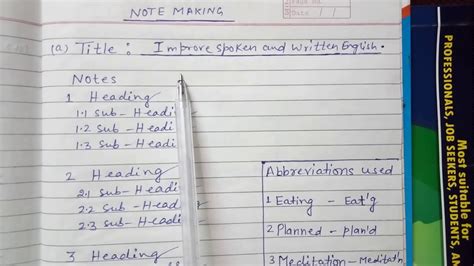 NOTE MAKING
Date / /
(a) Title : Improve spoken and written English.
Notes
1 Heading
1.1 Sub - Headi
1.2 Sub - Headi
1.3 Sub - Headi
2 Heading
2.1 Sub - Headi
2.2 Sub - Head
2.3 Sub - Head
3 Heading
Abbreviations used
1 Eating - Eat'g
2 Planned - plan'd
3 Meditation - Meditatn
Most suitable for
PROFESSIONALS, JOB SEEKERS, STUDENTS, AN